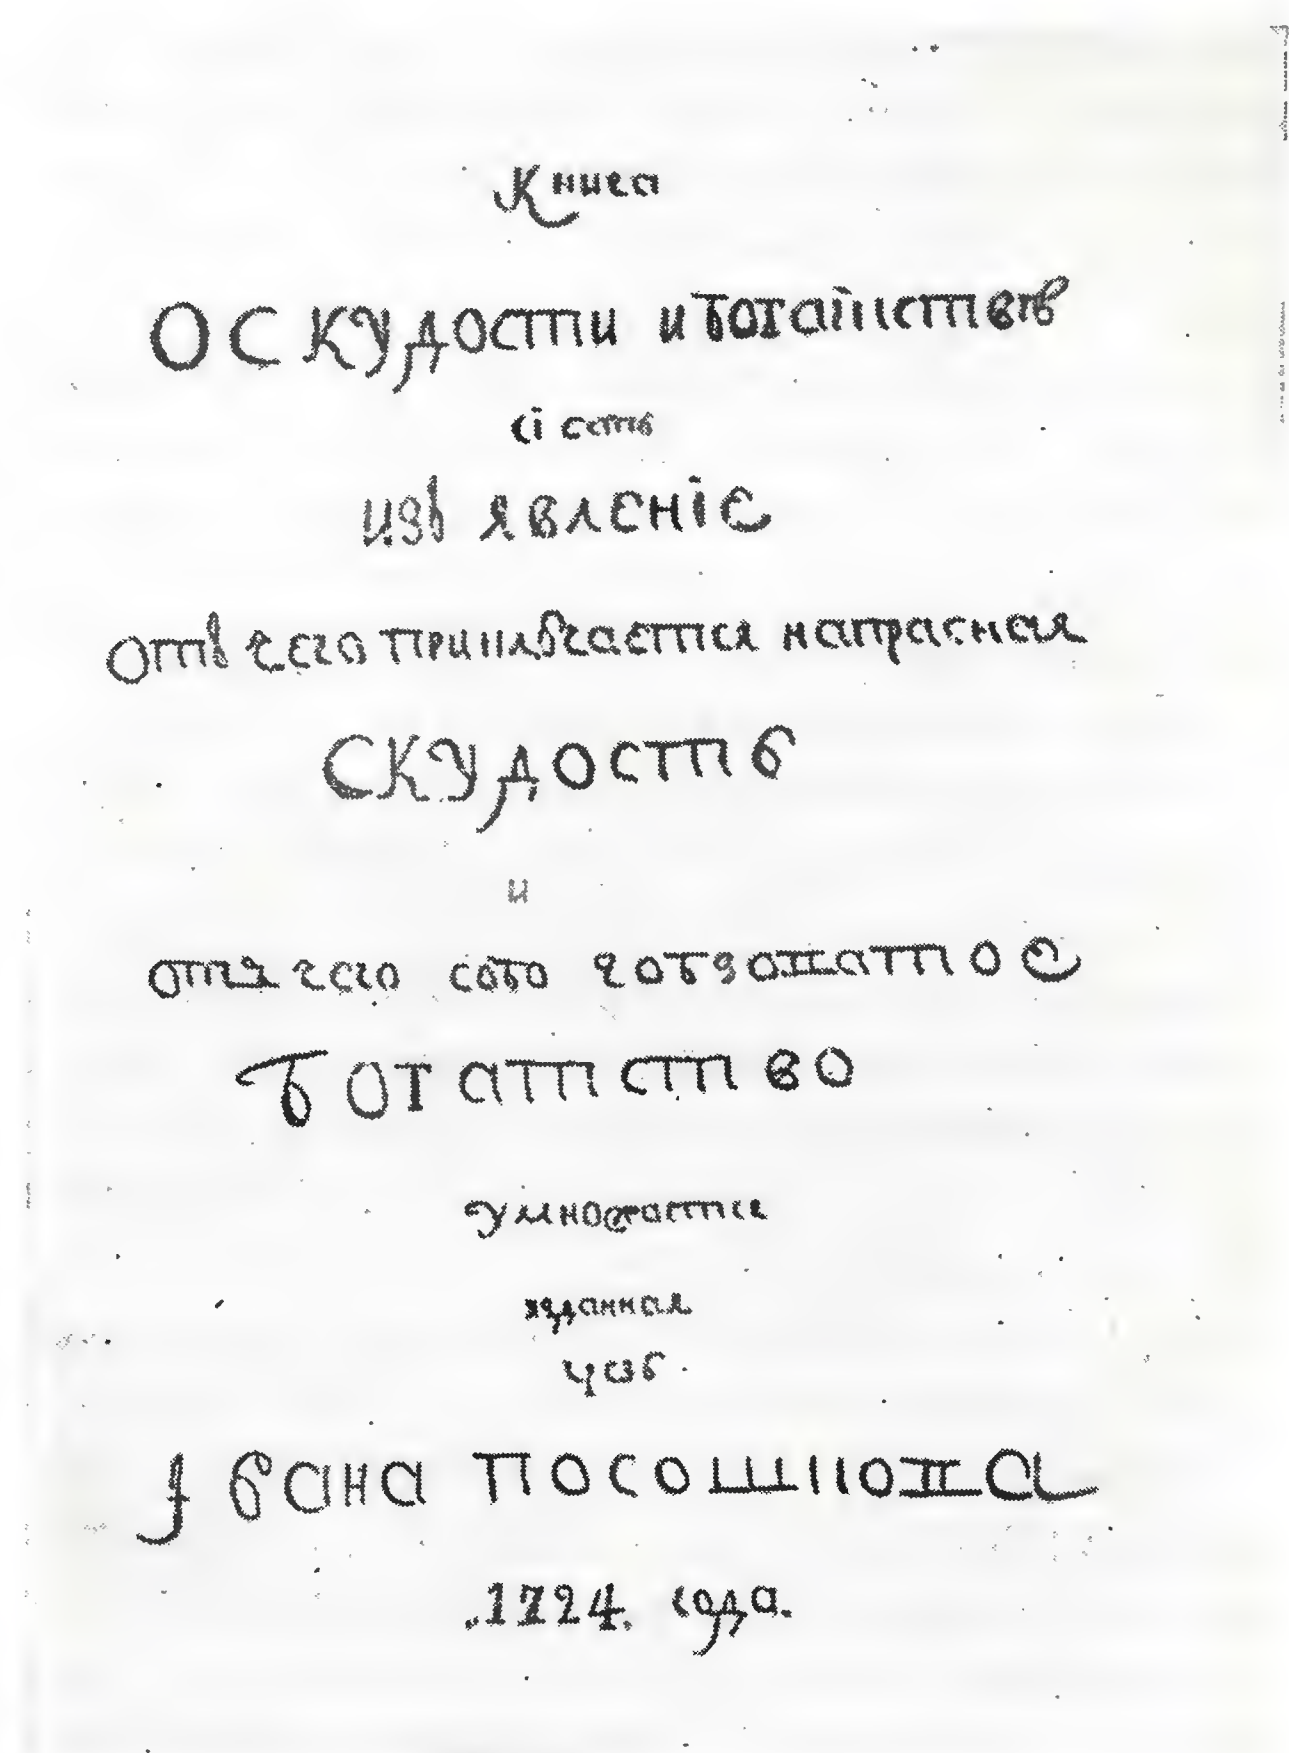 Книга
О СКУДОСТИ и богатйстве
сі есть
изъ явленіе
отъ чего приключается напрасная
СКУДОСТЬ
и
от чего
Богатство
умножается
зданная
чрезъ
Івана Посошкова
.1724. года.